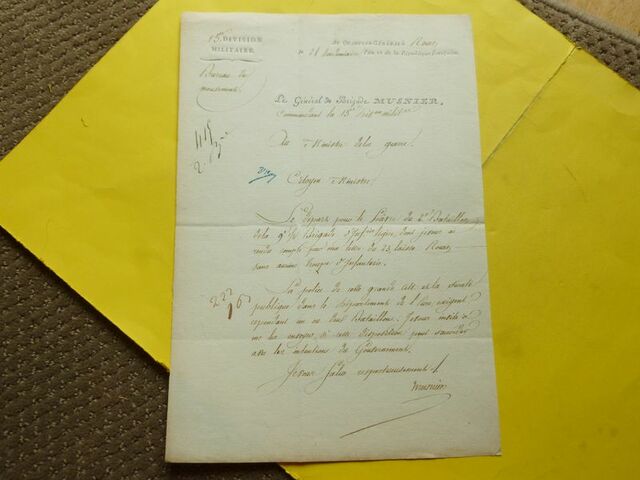 15e DIVISION
MILITAIRE.
Au Quartier-Général à Rouen
le 28 Vendémiaire l'an 11 de la République française.
Bureau du
mouvement
Le Général de Brigade MUSNIER,
Commandant la 15e Divon milit.re
Au Ministre de la guerre.
Citoyen Ministre,
Le départ pour le du 2e Bataillon
de la 9e 1/2 Brigade d'Infrie légère, dont je vous ai
rendu compte par ma lettre du 23, laisse Rouen
sans aucune troupe d'Infanterie.
La police de cette grande cité et la sureté
publique dans le département de l'Eure exigent
cependant un ou deux Bataillons. Je vous invite à
me les envoyer, si cette disposition peut s'accorder
avec les intentions du Gouvernement.
Je vous salue respectueusement
Musnier